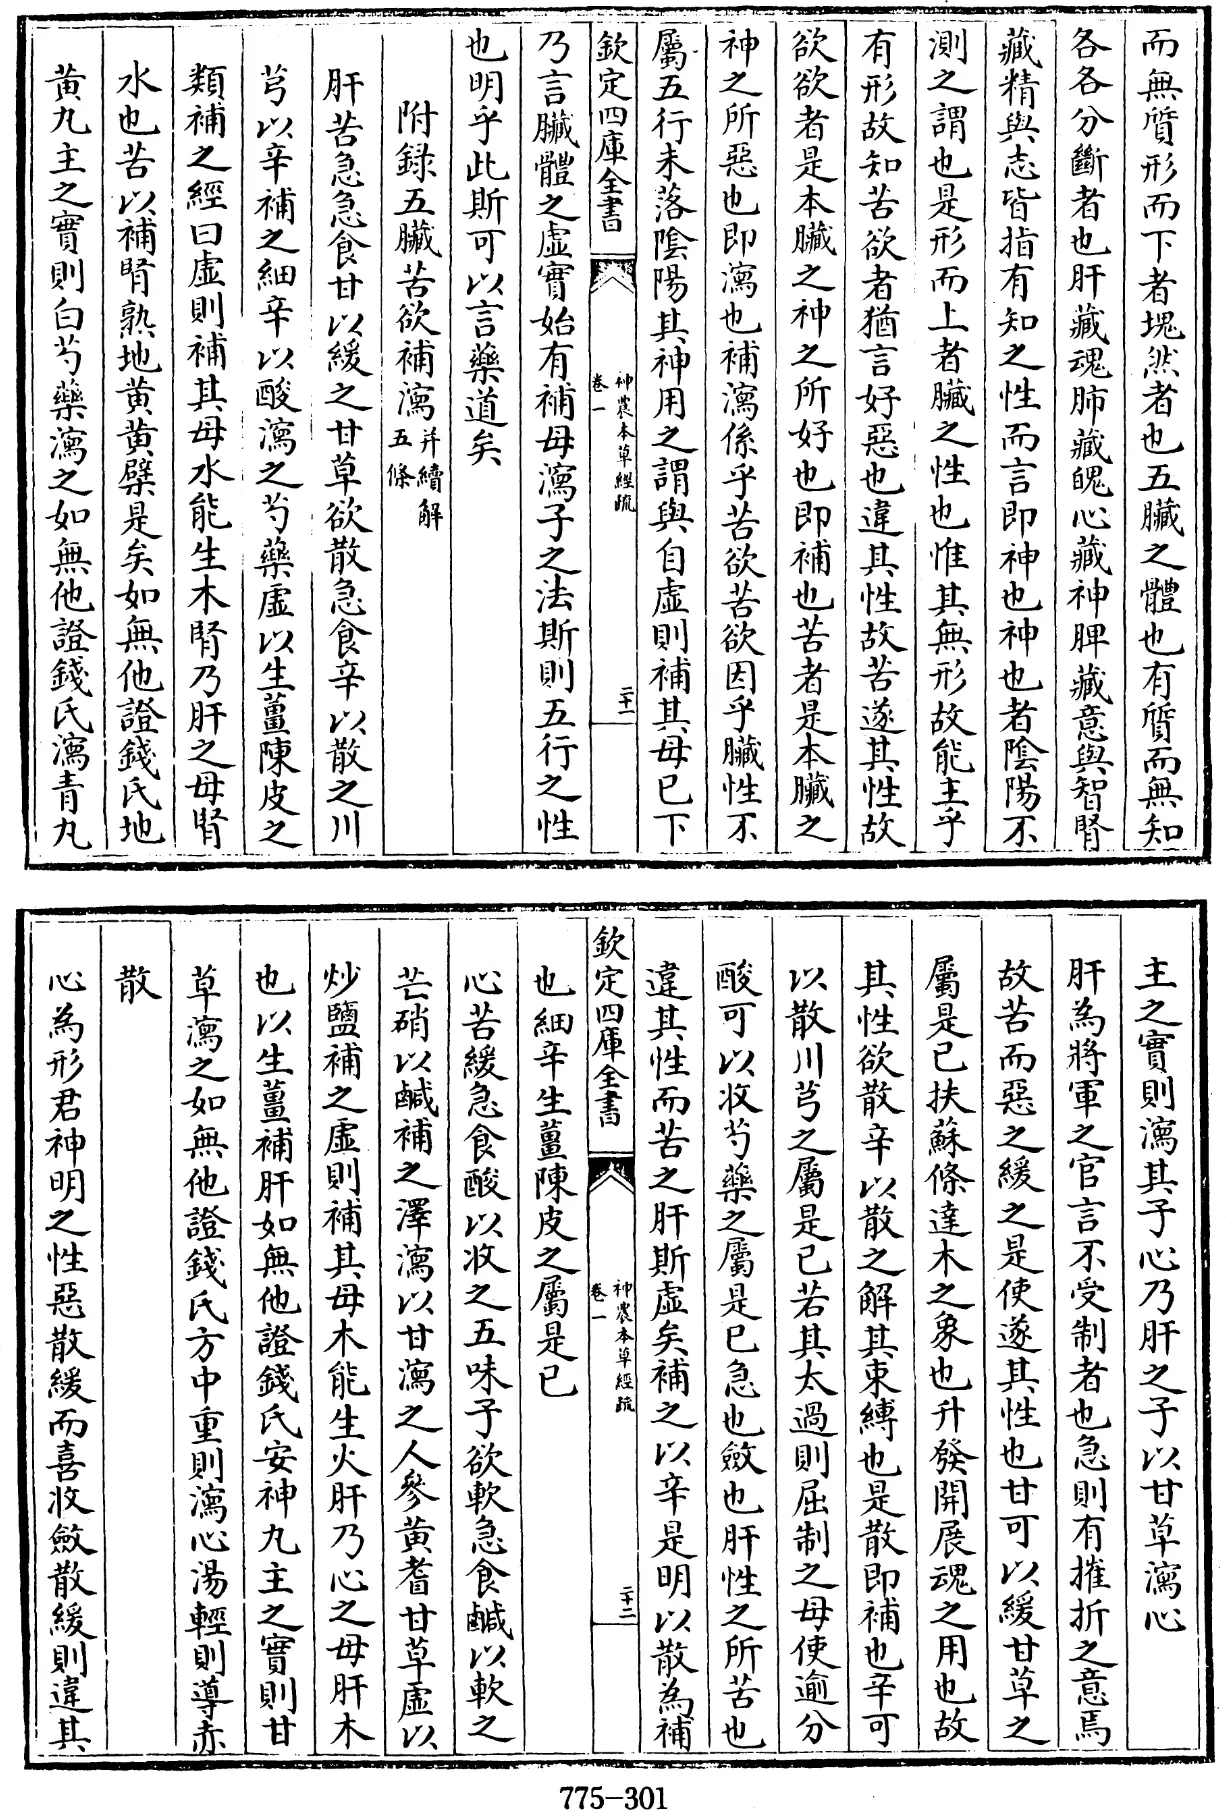 而無質形而下者塊然者也五臟之體也有質而無知
各各分斷者也肝藏魂肺藏魄心藏神脾藏意與智腎
藏精與志皆指有知之性而言即神也神也者陰陽不
測之謂也是形而上者臟之性也惟其無形故能主乎
有形故知苦欲者猶言好惡也違其性故苦遂其性故
欲欲者是本臟之神之所好也即補也苦者是本臟之
神之所惡也即瀉也補瀉係乎苦欲苦欲因乎臟性不
屬五行未落陰陽其神用之謂與自虛則補其母已下
欽定四庫全書
神農本草經疏
卷一
二十一
乃言臟體之虛實始有補母瀉子之法斯則五行之性
也明乎此斯可以言藥道矣
附錄五臟苦欲補瀉并續解五條
肝苦急急食甘以緩之甘草欲散急食辛以散之川
芎以辛補之細辛以酸瀉之芍藥虛以生薑陳皮之
類補之經曰虛則補其母水能生木腎乃肝之母腎
水也苦以補腎熟地黃黃檗是矣如無他證錢氏地
黃丸主之實則白芍藥瀉之如無他證錢氏瀉青丸
主之實則瀉其子心乃肝之子以甘草瀉心
肝為將軍之官言不受制者也急則有摧折之意焉
故苦而惡之緩之是使遂其性也甘可以緩甘草之
屬是已扶蘇條達木之象也升發開展魂之用也故
其性欲散辛以散之解其束縛也是散即補也辛可
以散川芎之屬是已若其太過則屈制之毋使逾分
酸可以收芍藥之屬是已急也斂也肝性之所苦也
違其性而苦之肝斯虛矣補之以辛是明以散為補
欽定四庫全書
神農本草經疏
卷一
二十二
也細辛生薑陳皮之屬是已
心苦緩急食酸以收之五味子欲軟急食鹹以軟之
芒硝以鹹補之澤瀉以甘瀉之人參黃耆甘草虛以
炒鹽補之虛則補其母木能生火肝乃心之母肝木
也以生薑補肝如無他證錢氏安神丸主之實則甘
草瀉之如無他證錢氏方中重則瀉心湯輕則導赤
散
心為形君神明之性惡散緩而喜收斂散緩則違其
775-301